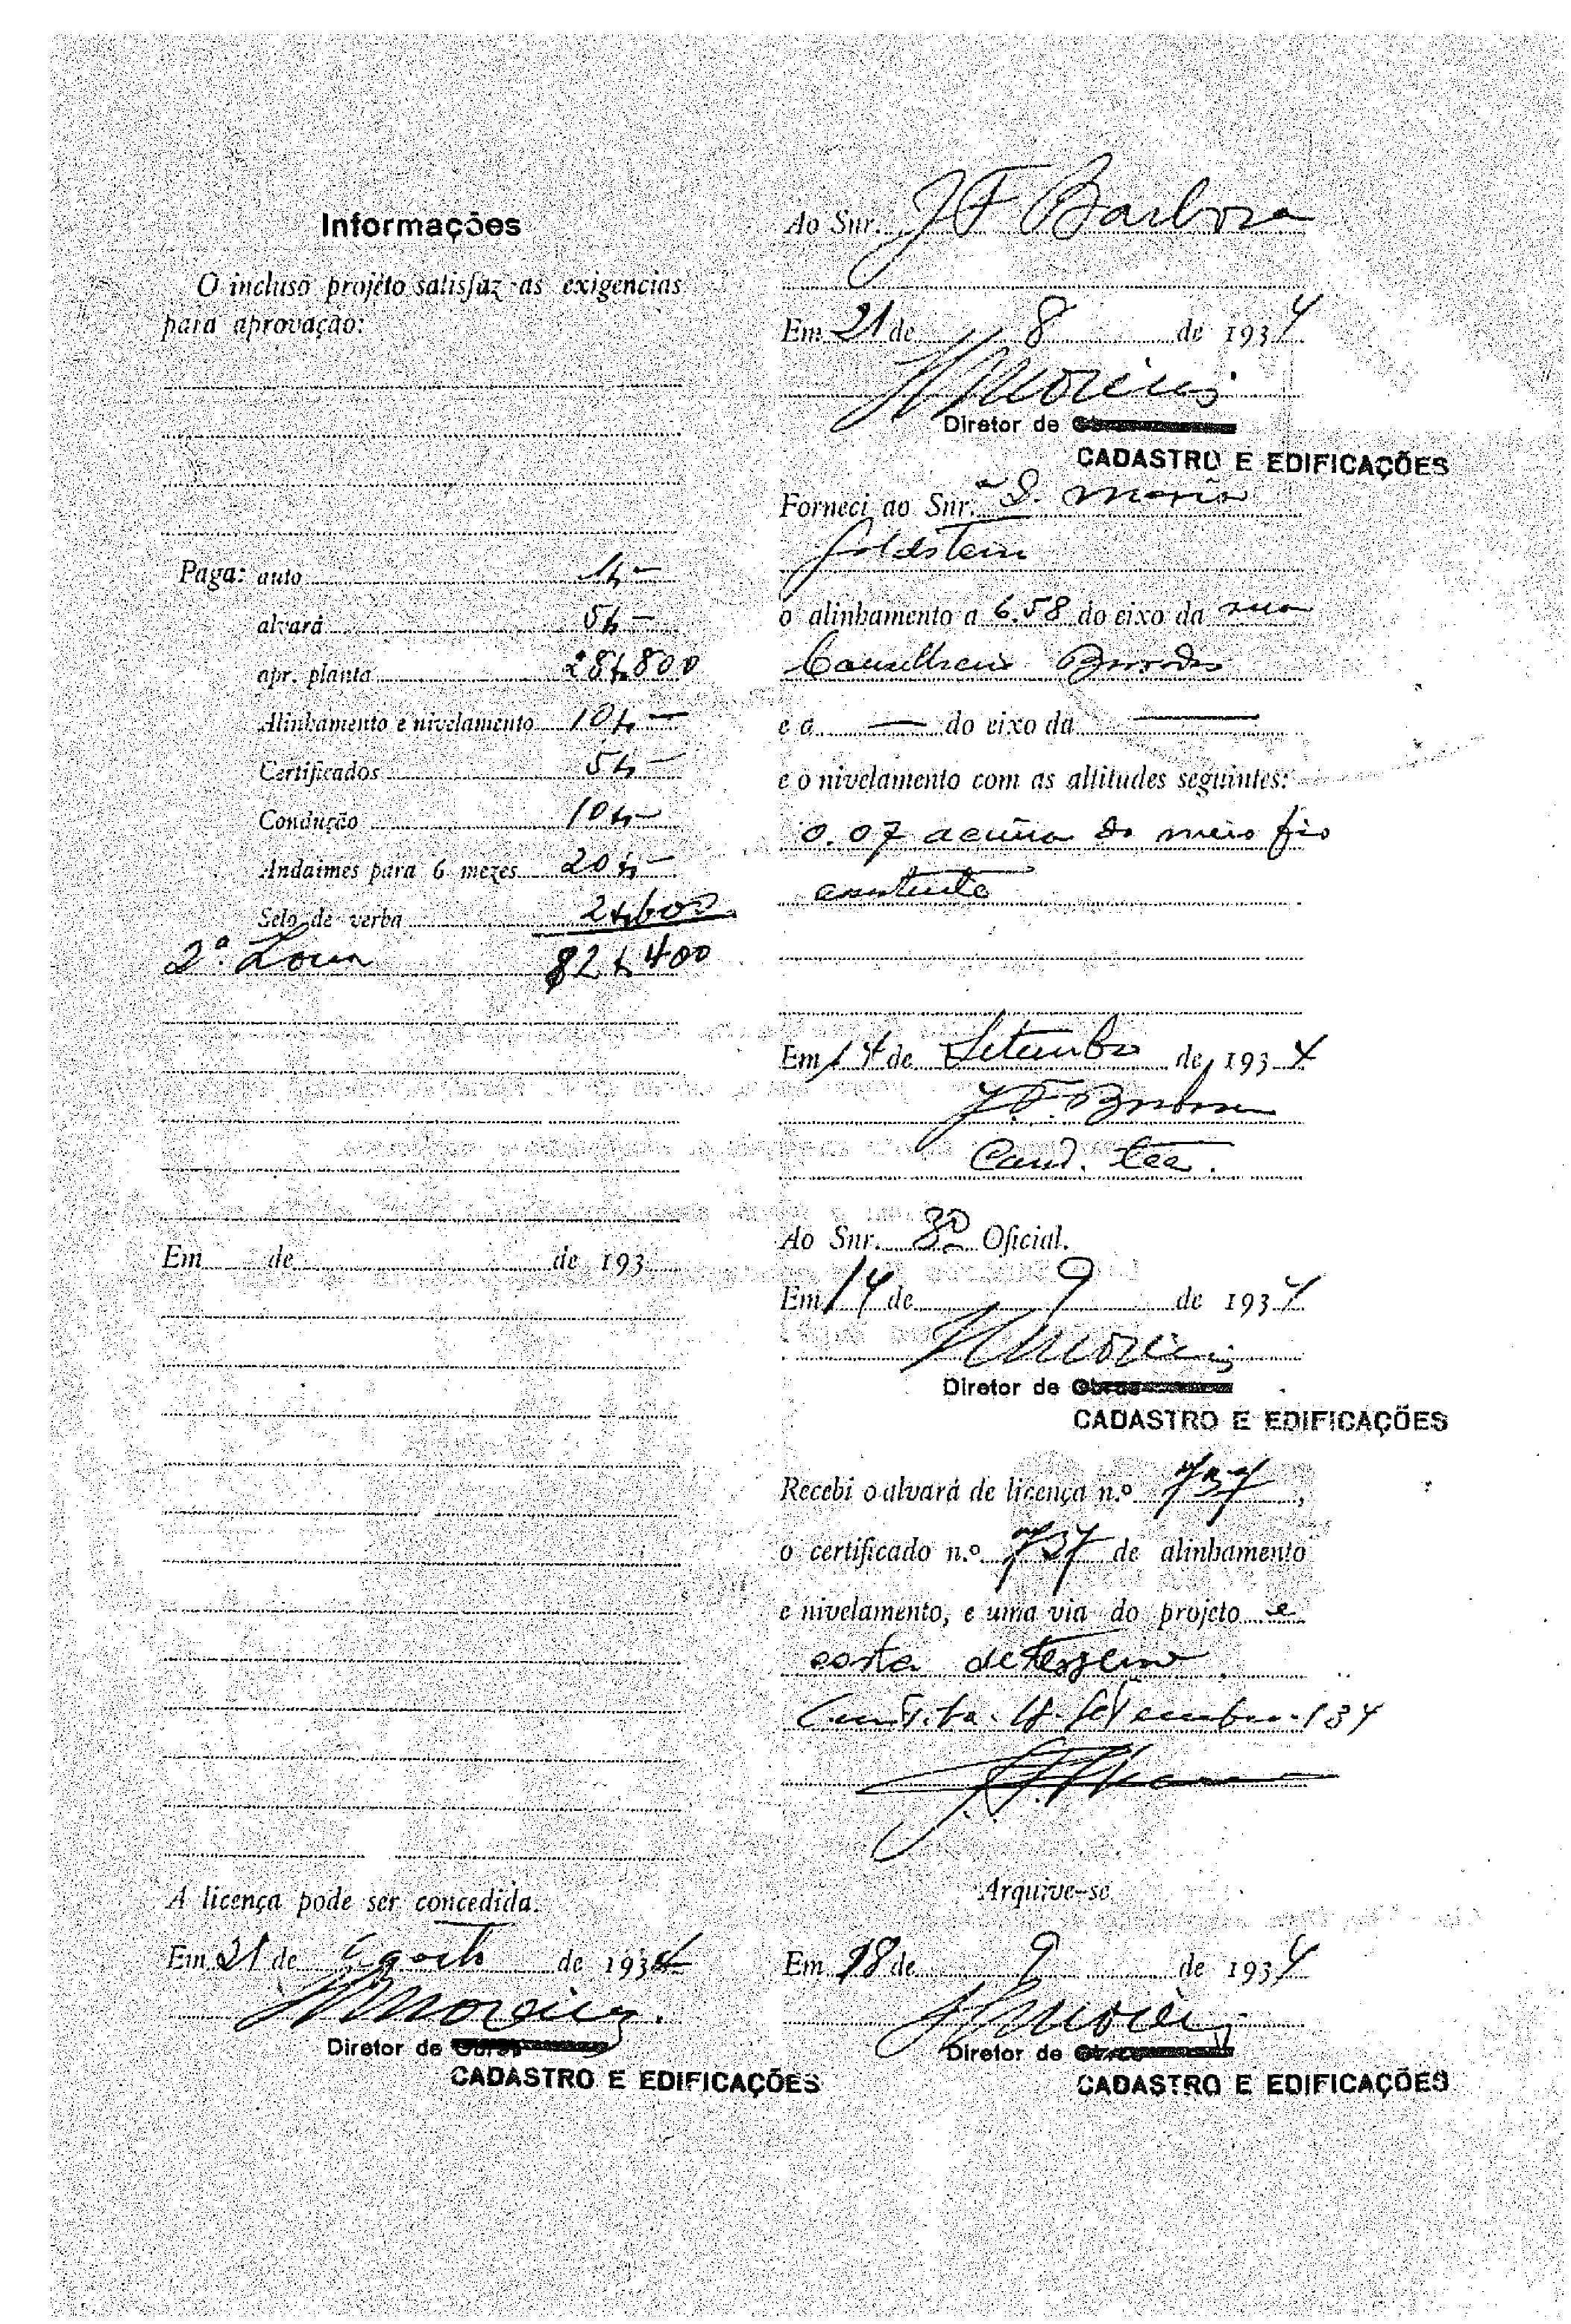 Informações
O incluso projéto satisfaz as exigencias
para aprovação:
Paga: auto 1$—
alvará 5$—
apr. planta 28$800
Alinhamento e nivelamento 10$—
Certificados 5$—
Condução 10$—
Andaimes para 6 mezes 20$—
Selo de verba 2$600
2ª. Zona 82$400
Em de de 193
A licença pode ser concedida.
Em 21 de Agosto de 1934
Moreira
Diretor de Obras
CADASTRO E EDIFICAÇÕES
Ao Snr. J F Barbosa
Em 21 de 8 de 1934
Moreira
Diretor de Obras
CADASTRO E EDIFICAÇÕES
Forneci ao Snr. a D. Maria
Goldstein
o alinhamento a 6.58 do eixo da rua
Conselheiro Barradas
e a — do eixo da —
e o nivelamento com as altitudes seguintes:
0.07 acima do meio fio
existente
Em 14 de Setembro de 1934
J. F. Barbosa
Cond. tec.
Ao Snr. 3º Oficial.
Em 14 de 9 de 1934
Moreira
Diretor de Obras
CADASTRO E EDIFICAÇÕES
Recebi o alvará de licença n.º 737,
o certificado n.º 737 de alinhamento
e nivelamento, e uma via do projeto e
carta de terreno.
Curitiba. Setembro. 134
Arquive-se
Em 18 de 9 de 1934
Moreira
Diretor de Obras
CADASTRO E EDIFICAÇÕES